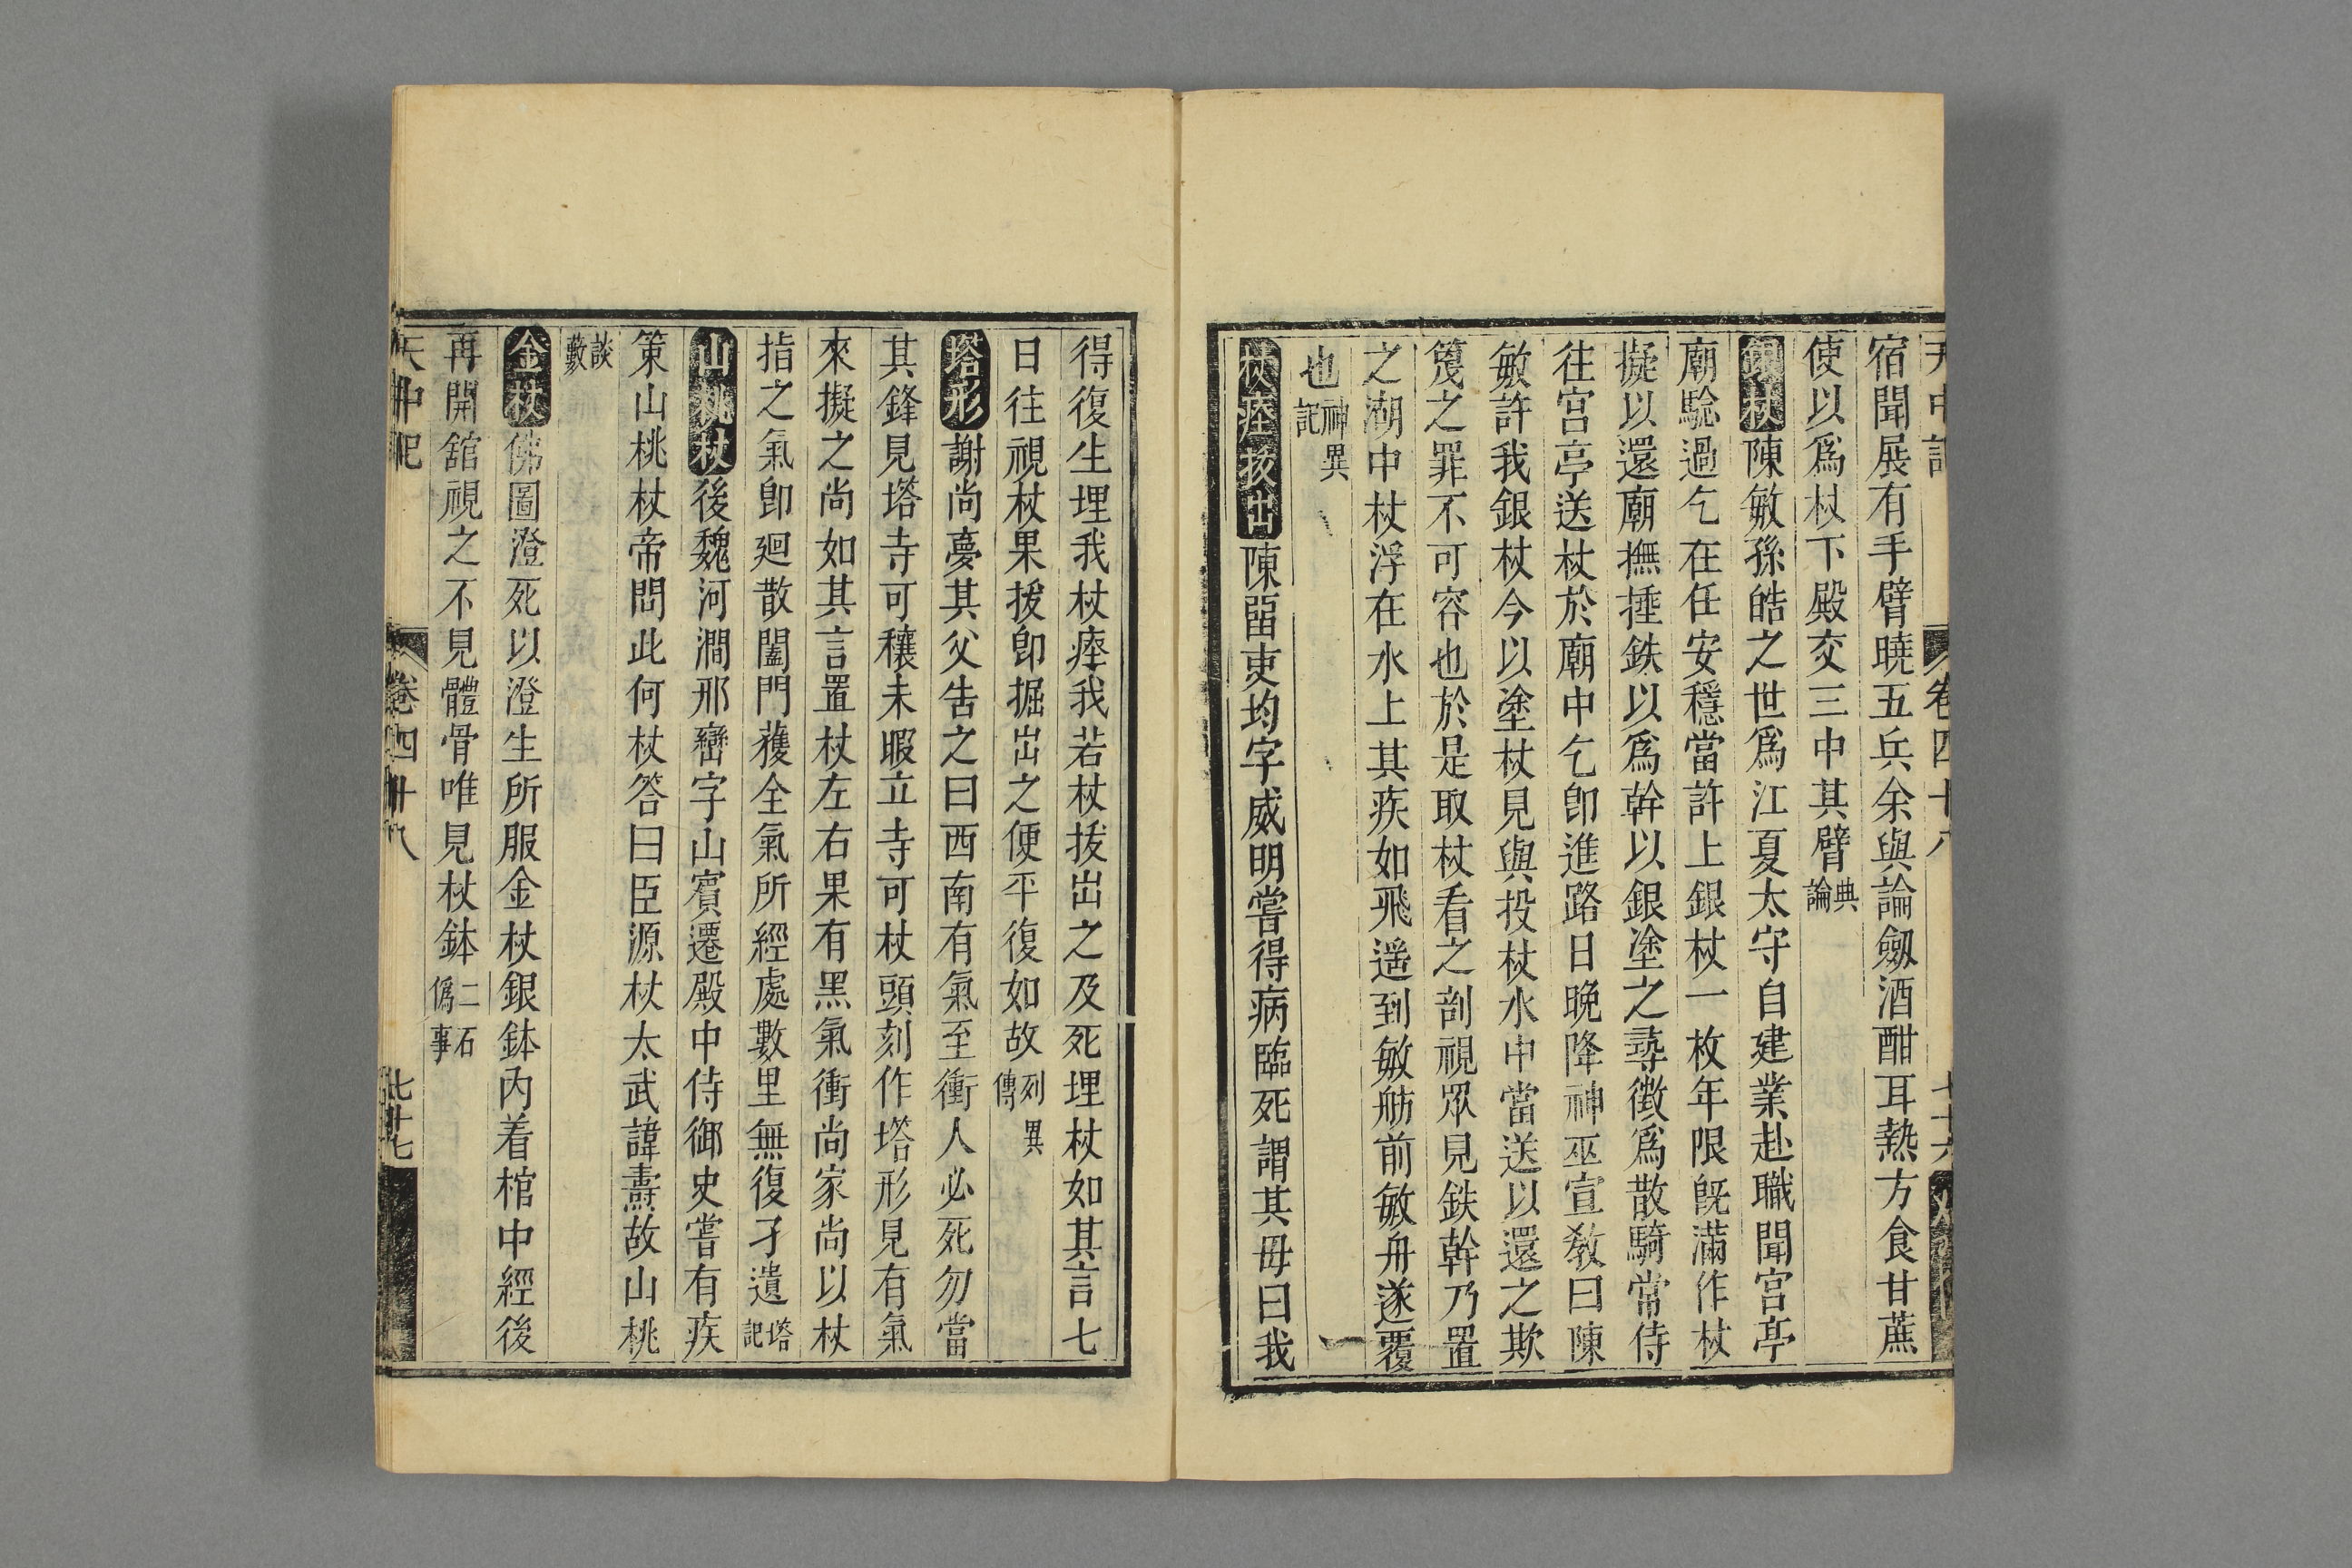 宿聞展有手臂曉五兵余與論劔酒酣耳熱方食甘蔗
使以爲杖下殿交三中其臂典論
銀杖陳敏孫皓之世爲江夏太守自建業赴職聞宮亭
廟驗過乞在任安穩當許上銀杖一枚年限旣滿作杖
擬以還廟撫捶鉄以爲幹以銀塗之尋徵爲散騎常侍
往宮亭送杖於廟中乞卽進路日晚降神巫宣敎曰陳
敏許我銀杖今以塗杖見與投杖水中當送以還之欺
篾之罪不可容也於是取杖看之剖視眾見鉄幹乃置
之湖中杖浮在水上其疾如飛遥到敏舫前敏舟遂覆
也神異記
杖痤拔出陳畱吏均字威明嘗得病臨死謂其毋曰我
得復生埋我杖瘞我若杖拔出之及死埋杖如其言七
日往視杖果拔卽掘出之便平復如故列異傳
塔形謝尚夢其父告之曰西南有氣至衝人必死勿當
其鋒見塔寺可穰未暇立寺可杖頭刻作塔形見有氣
來擬之尚如其言置杖左右果有黑氣衝尚家尚以杖
指之氣卽廻散闔門獲全氣所經處數里無復孑遺塔記
山桃杖後魏河澗邢巒字山賓遷殿中侍御史嘗有疾
策山桃杖帝問此何杖答曰臣源杖太武諱燾故山桃
談藪
金杖佛圖澄死以澄生所服金杖銀鉢內着棺中經後
再開舘視之不見體骨唯見杖鉢二石僞事
天中記
卷四十八
七十七